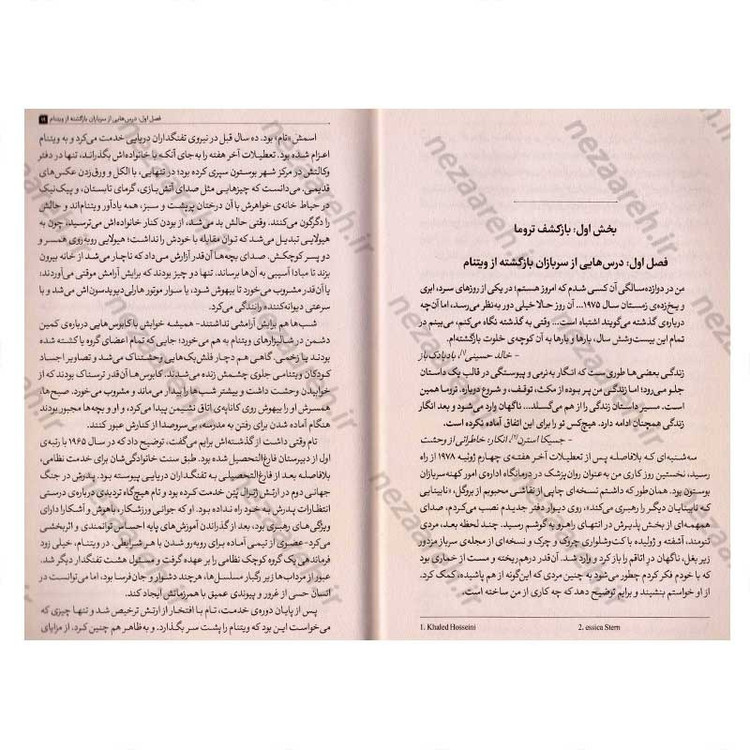 بخش اول: بازکشف تروما
فصل اول: درس‌هایی از سربازان بازگشته از ویتنام
من در دوازده‌سالگی آن کسی شدم که امروز هستم؛ در یکی از روزهای سرد، ابری
و یخ‌زده‌ی زمستان سال ۱۹۷۵... آن روز حالا خیلی دور به‌نظر می‌رسد، اما آن‌چه
درباره‌ی گذشته می‌گویند اشتباه است... وقتی به گذشته نگاه می‌کنم، می‌بینم در
تمام این بیست‌وشش سال، بارها و بارها به آن کوچه‌ی خلوت بازگشته‌ام.
- خالد حسینی[1]، بادبادک‌باز
زندگی بعضی‌ها طوری است که انگار به‌نرمی و پیوستگی در قالب یک داستان
جلو می‌رود؛ اما زندگی من پر بوده از مکث، توقف، و شروع دوباره. تروما همین
است. مسیر داستان زندگی را از هم می‌گسلد... ناگهان وارد می‌شود و بعد انگار
زندگی همچنان ادامه دارد. هیچ‌کس تو را برای این اتفاق آماده نکرده است.
- جسیکا استرن[2]، انکار: خاطراتی از وحشت
سه‌شنبه‌ای که بلافاصله پس از تعطیلات آخر هفته‌ی چهارم ژوئیه ۱۹۷۸ از راه
رسید، نخستین روز کاری من به‌عنوان روان‌پزشک در درمانگاه اداره‌ی امور کهنه‌سربازان
بوستون بود. همان‌طور که داشتم نسخه‌ای چاپی از نقاشی محبوبم از بروگل، «نابینایی
که نابینایان دیگر را رهبری می‌کند»، روی دیوار دفتر جدیدم نصب می‌کردم، صدای
همهمه‌ای از بخش پذیرش در انتهای راهرو به گوشم رسید. چند لحظه بعد، مردی
تنومند، آشفته و ژولیده با کت‌وشلواری چروک و چرک و نسخه‌ای از مجله‌ی سرباز مزدور
زیر بغل، ناگهان در اتاقم را باز کرد و وارد شد. آن‌قدر درهم ریخته و مست از خماری بود
که با خودم فکر کردم چطور می‌شود به چنین مردی که این‌گونه از هم پاشیده، کمک کرد.
از او خواستم بنشیند و برایم توضیح دهد که چه کاری از من ساخته است.
1. Khaled Hosseini 2. essica Stern
فصل اول: درس‌هایی از سربازان بازگشته از ویتنام
اسمش «تام» بود. ده سال قبل در نیروی تفنگداران دریایی خدمت می‌کرد و به ویتنام
اعزام شده بود. تعطیلات آخر هفته را به‌جای آنکه با خانواده‌اش بگذراند، تنها در دفتر
وکالتش در مرکز شهر بوستون سپری کرده بود؛ در تنهایی، با الکل و ورق‌زدن عکس‌های
قدیمی. می‌دانست که چیزهایی مثل صدای آتش‌بازی، گرمای تابستان، و پیک‌نیک
در حیاط خانه‌ی خواهرش با آن درختان پرپشت و سبز، همه یادآور ویتنام‌اند و حالش
را دگرگون می‌کنند. وقتی حالش بد می‌شد، از بودن کنار خانواده‌اش می‌ترسید، چون به
هیولایی تبدیل می‌شد که توان مقابله با خودش را نداشت؛ هیولایی روبه‌روی همسر و
دو پسر کوچکش. صدای بچه‌ها آن‌قدر آزارش می‌داد که ناچار می‌شد از خانه بیرون
بزند تا مبادا آسیبی به آن‌ها برساند. تنها دو چیز بودند که برایش آرامش موقتی می‌آوردند:
یا آن‌قدر مشروب می‌خورد تا بیهوش شود، یا سوار موتور هارلی‌دیویدسون‌اش می‌شد و با
سرعتی دیوانه‌کننده رانندگی می‌کرد.
شب‌ها هم برایش آرامشی نداشتند- همیشه خوابش با کابوس‌هایی درباره‌ی کمین
دشمن در شالیزارهای ویتنام به هم می‌خورد؛ جایی که تمام اعضای گروه یا کشته شده
بودند یا زخمی. گاهی هم دچار فلش‌بک‌هایی وحشتناک می‌شد و تصاویر اجساد
کودکان ویتنامی جلوی چشمش زنده می‌شدند. کابوس‌ها آن‌قدر ترسناک بودند که از
خوابیدن وحشت داشت و بیشتر شب‌ها را بیدار می‌ماند و مشروب می‌خورد. صبح‌ها،
همسرش او را بیهوش روی کاناپه‌ی اتاق نشیمن پیدا می‌کرد، و او و بچه‌ها مجبور بودند
هنگام آماده شدن برای رفتن به مدرسه، بی‌سروصدا از کنارش عبور کنند.
تام وقتی داشت از گذشته‌اش برایم می‌گفت، توضیح داد که در سال ۱۹۶۵ با رتبه‌ی
اول از دبیرستان فارغ‌التحصیل شده بود. طبق سنت خانوادگی‌شان برای خدمت نظامی،
بلافاصله بعد از فارغ‌التحصیلی به تفنگداران دریایی پیوسته بود. پدرش در جنگ
جهانی دوم در ارتش ژنرال پتن خدمت کرده بود و تام هیچ‌گاه تردیدی درباره‌ی درستی
انتظارات پدرش به خود راه نداده بود. او که جوانی ورزشکار، باهوش و آشکارا دارای
ویژگی‌های رهبری بود، بعد از گذراندن آموزش‌های پایه احساس توانمندی و اثربخشی
می‌کرد-عضوی از تیمی آماده برای روبه‌رو شدن با هر شرایطی. در ویتنام، خیلی زود
فرماندهی یک گروه کوچک نظامی را بر عهده گرفت و مسئول هشت تفنگدار دیگر شد.
عبور از مرداب‌ها زیر رگبار مسلسل‌ها، هرچند دشوار و جان‌فرسا بود، اما می‌توانست در
انسان حسی از غرور و پیوندی عمیق با هم‌رزمانش ایجاد کند.
پس از پایان دوره‌ی خدمت، تام با افتخار از ارتش ترخیص شد و تنها چیزی که
می‌خواست این بود که ویتنام را پشت سر بگذارد. و به‌ظاهر هم چنین کرد. از مزایای
nezaareh.ir